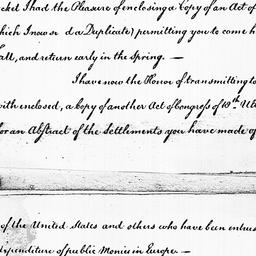 I had the Pleasure of enclosing a Copy of an Act of
which I now se d a Duplicate) permitting you to come h
all, and return early in the Spring. —
I have now the Honor of transmitting to
with enclosed, a copy of another Act of Congress of 18th Ult
for an Abstract of the Settlements you have made of
of the United States and others who have been entrus
Expenditure of public Monies in Europe. —